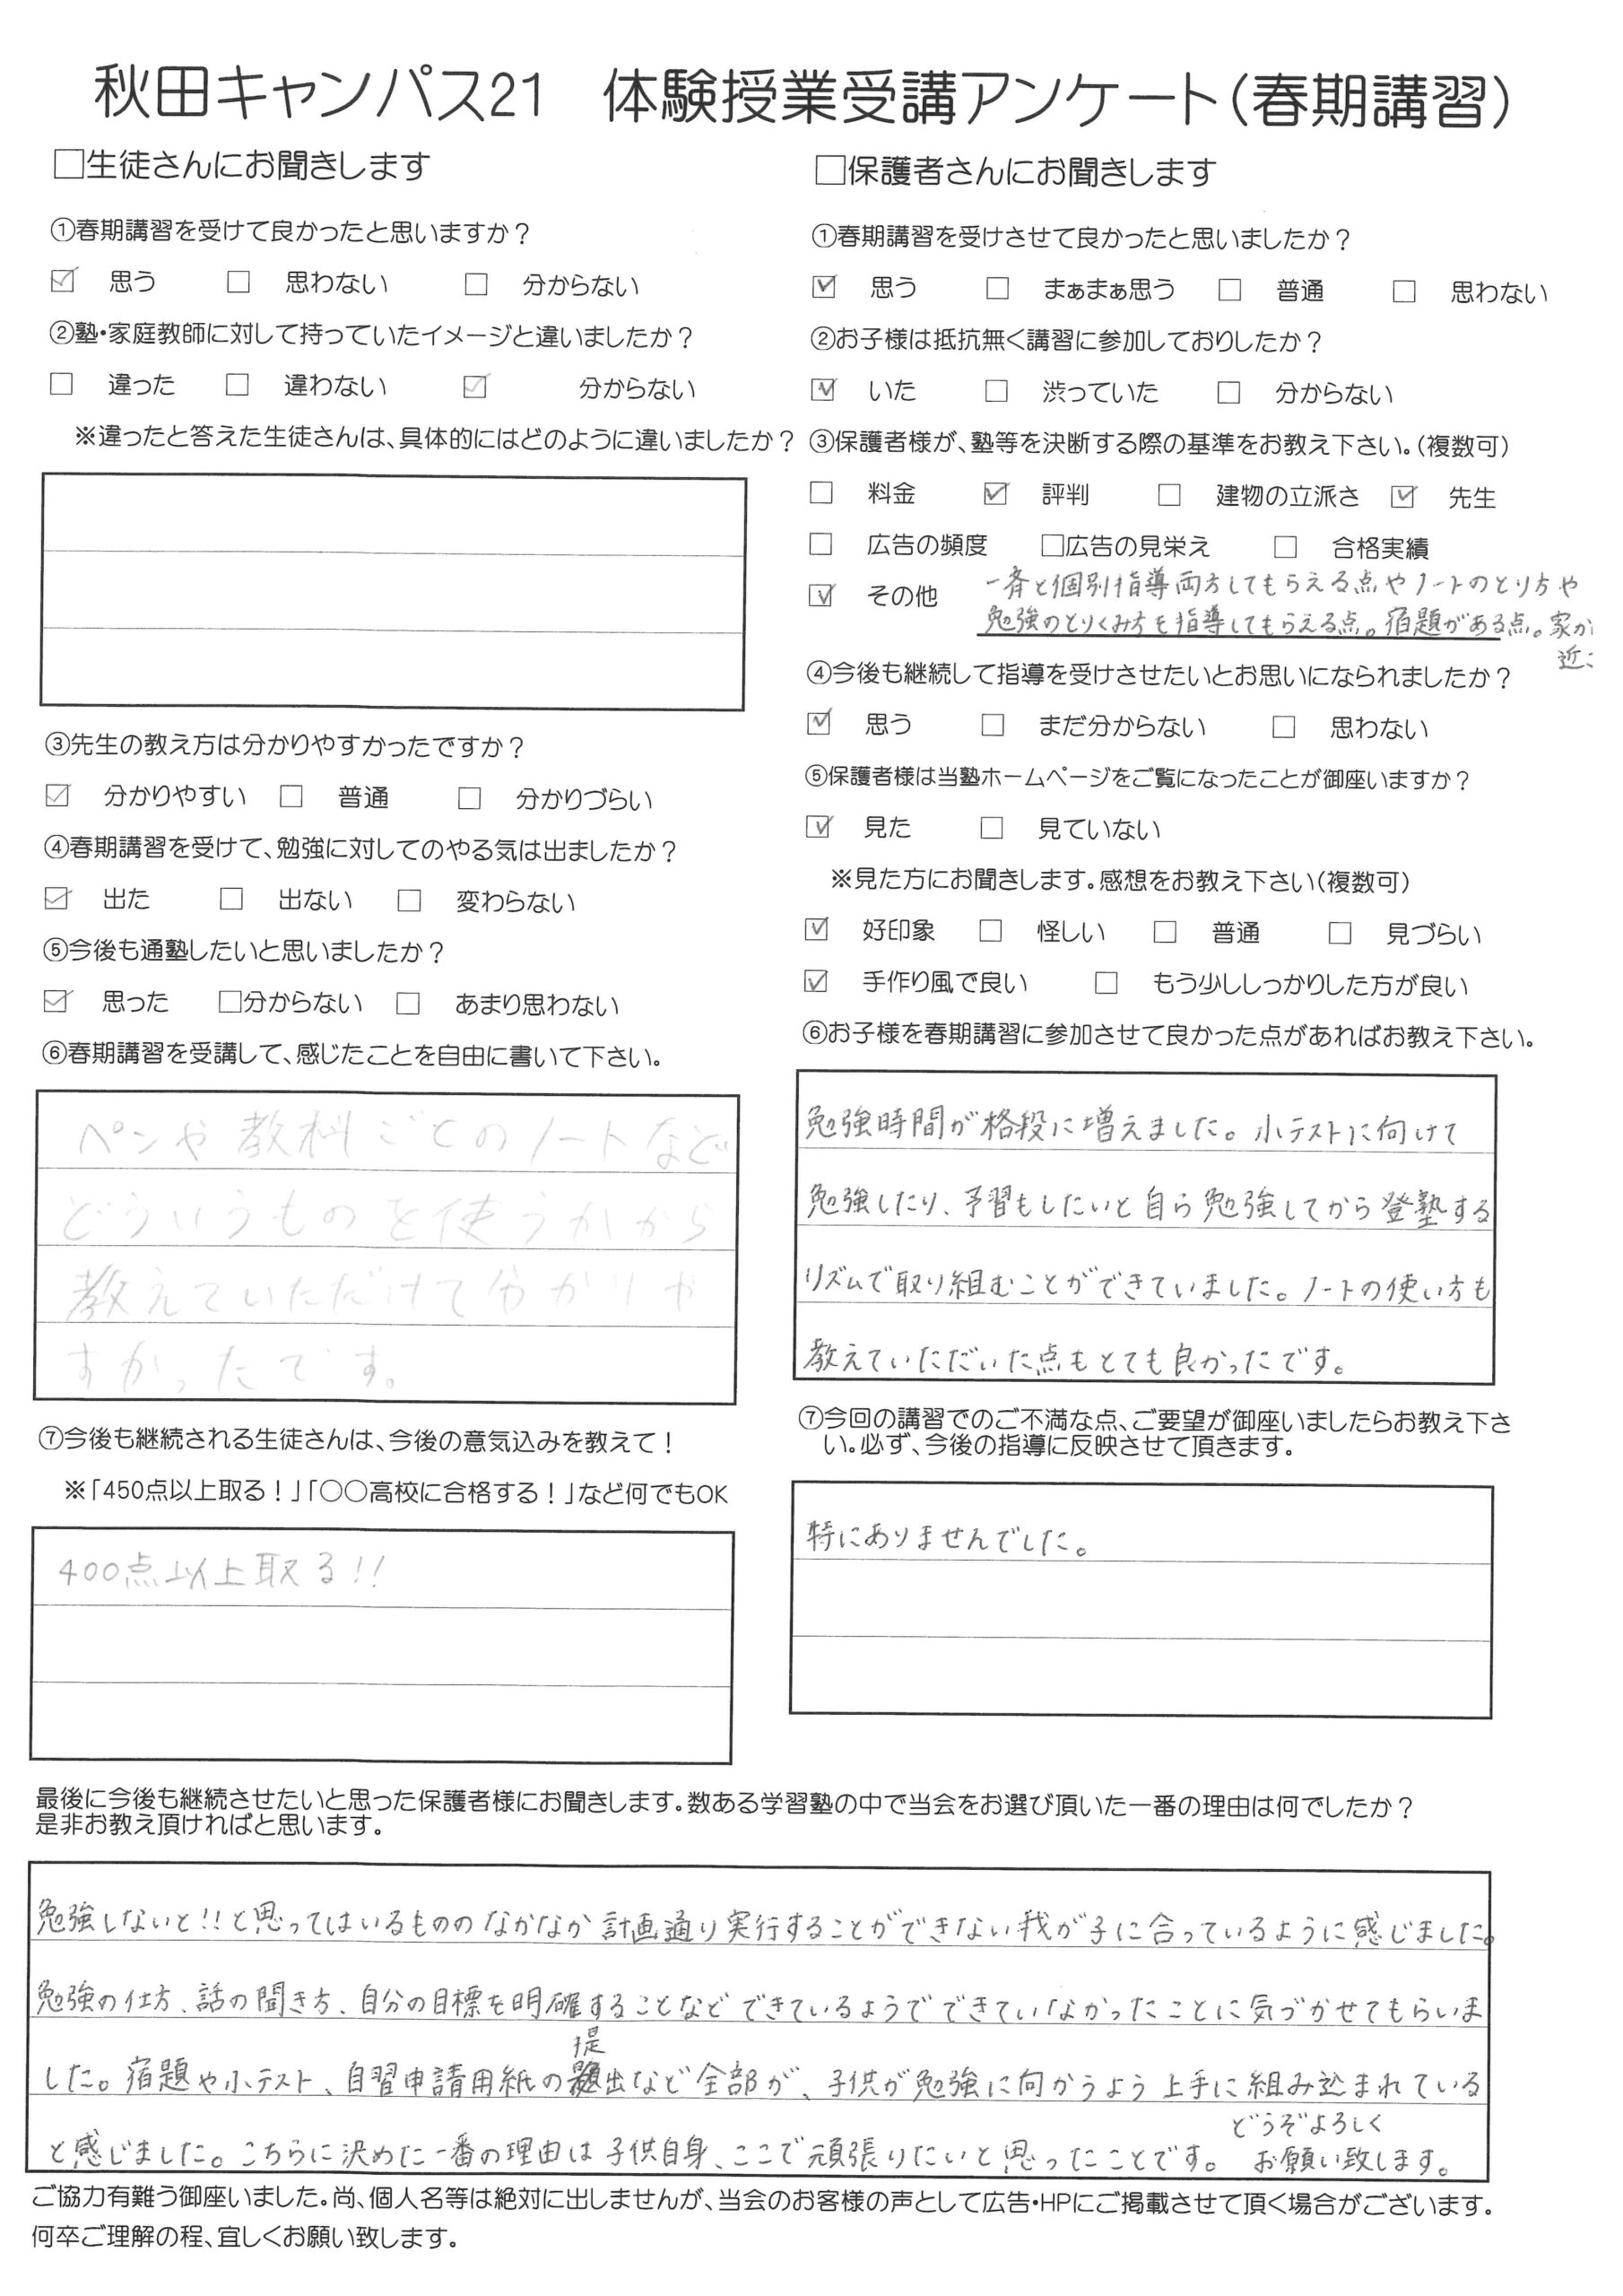 秋田キャンパス21　体験授業受講アンケート（春期講習）
□生徒さんにお聞きします
①春期講習を受けて良かったと思いますか？
☑ 思う □ 思わない □ 分からない
②塾・家庭教師に対して持っていたイメージと違いましたか？
□ 違った □ 違わない ☑ 分からない
※違ったと答えた生徒さんは、具体的にはどのように違いましたか？
③先生の教え方は分かりやすかったですか？
☑ 分かりやすい □ 普通 □ 分かりづらい
④春期講習を受けて、勉強に対してのやる気は出ましたか？
☑ 出た □ 出ない □ 変わらない
⑤今後も通塾したいと思いましたか？
☑ 思った □分からない □ あまり思わない
⑥春期講習を受講して、感じたことを自由に書いて下さい。
ペンや教科ごとのノートなど
どういうものを使うかから
教えていただけて分かりや
すかったです。
⑦今後も継続される生徒さんは、今後の意気込みを教えて！
※「450点以上取る！」「〇〇高校に合格する！」など何でもOK
400点以上取る!!
□保護者さんにお聞きします
①春期講習を受けさせて良かったと思いましたか？
☑ 思う □ まぁまぁ思う □ 普通 □ 思わない
②お子様は抵抗無く講習に参加しておりしたか？
☑ いた □ 渋っていた □ 分からない
③保護者様が、塾等を決断する際の基準をお教え下さい。（複数可）
□ 料金 ☑ 評判 □ 建物の立派さ ☑ 先生
□ 広告の頻度 □広告の見栄え □ 合格実績
☑ その他 一斉と個別指導両方してもらえる点やノートのとり方や
勉強のとりくみ方も指導してもらえる点。宿題がある点。家か
近
④今後も継続して指導を受けさせたいとお思いになられましたか？
☑ 思う □ まだ分からない □ 思わない
⑤保護者様は当塾ホームページをご覧になったことが御座いますか？
☑ 見た □ 見ていない
※見た方にお聞きします。感想をお教え下さい（複数可）
☑ 好印象 □ 怪しい □ 普通 □ 見づらい
☑ 手作り風で良い □ もう少ししっかりした方が良い
⑥お子様を春期講習に参加させて良かった点があればお教え下さい。
勉強時間が格段に増えました。小テストに向けて
勉強したり、予習もしたいと自ら勉強してから登塾する
リズムで取り組むことができていました。ノートの使い方も
教えていただいた点もとても良かったです。
⑦今回の講習でのご不満な点、ご要望が御座いましたらお教え下さ
い。必ず、今後の指導に反映させて頂きます。
特にありませんでした。
最後に今後も継続させたいと思った保護者様にお聞きします。数ある学習塾の中で当会をお選び頂いた一番の理由は何でしたか？
是非お教え頂ければと思います。
勉強しないと!!と思ってはいるもののなかなか計画通り実行することができない我が子に合っているように感じました。
勉強の仕方、話の聞き方、自分の目標を明確することなどできているようでできていなかったことに気づかせてもらいま
した。宿題や小テスト、自習申請用紙の提出など全部が、子供が勉強に向かうよう上手に組み込まれている
と感じました。こちらに決めた一番の理由は子供自身、ここで頑張りたいと思ったことです。どうぞよろしく
お願い致します。
ご協力有難う御座いました。尚、個人名等は絶対に出しませんが、当会のお客様の声として広告・HPにご掲載させて頂く場合がございます。
何卒ご理解の程、宜しくお願い致します。